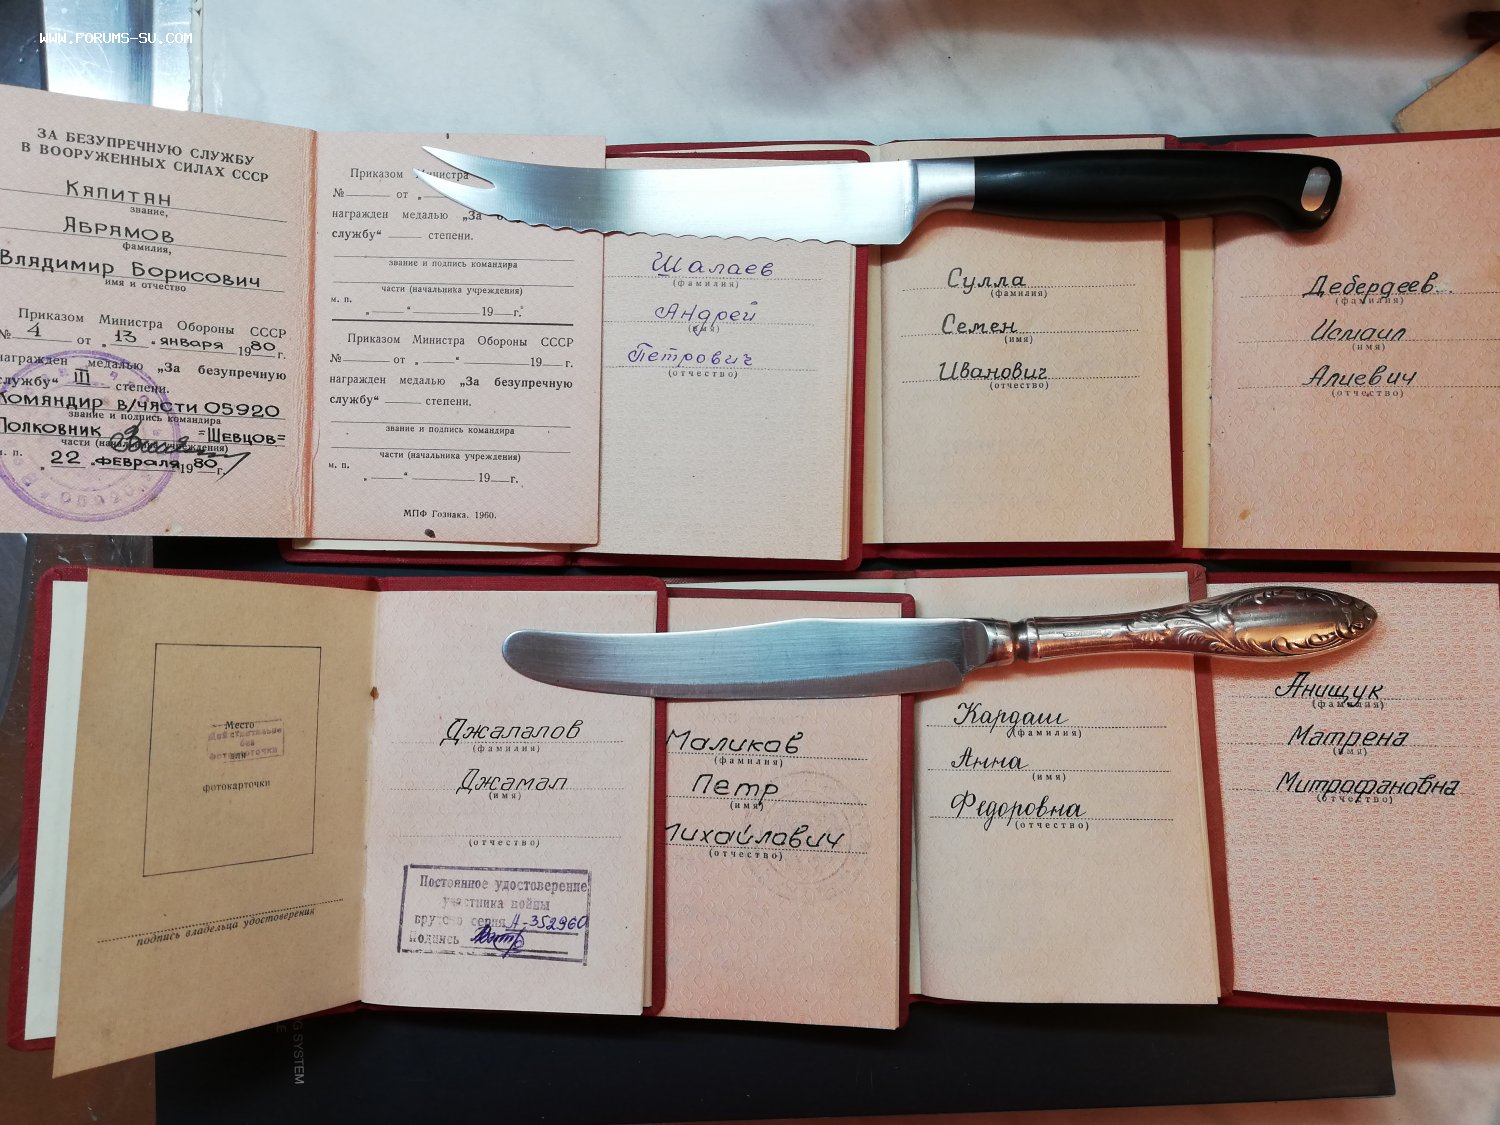 WWW.FORUMS-SU.COM
ЗА БЕЗУПРЕЧНУЮ СЛУЖБУ
В ВООРУЖЕННЫХ СИЛАХ СССР
Капитан
звание,
Абрамов
фамилия,
Владимир Борисович
имя и отчество
Приказом Министра Обороны СССР
№ 4 от „ 13 „ января 1980 г.
награжден медалью „За безупречную
службу“ III степени.
Командир в/части 05920
звание и подпись командира
Полковник =Шевцов=
части (начальника учреждения)
м. п.
„ 22 „ февраля 1980 г.
Приказом Министра
№ от „
награжден медалью „За
службу“ степени.
звание и подпись командира
части (начальника учреждения)
м. п.
„ “ 19 г.
Приказом Министра Обороны СССР
№ от „ “ 19 г.
награжден медалью „За безупречную
службу“ степени.
звание и подпись командира
части (начальника учреждения)
м. п.
„ “ 19 г.
МПФ Гознака. 1960.
Шалаев
(фамилия)
Андрей
(имя)
Петрович
(отчество)
Сулла
(фамилия)
Семен
(имя)
Иванович
(отчество)
Дебердеев
(фамилия)
Исмаил
(имя)
Алиевич
(отчество)
Место
Действительно
без
фотокарточки
для
фотокарточки
подпись владельца удостоверения
Джалалов
(фамилия)
Джамал
(имя)
(отчество)
Постоянное удостоверение
участника войны
вручено серия А-352960
Подпись
Маликов
(фамилия)
Петр
(имя)
Михайлович
(отчество)
Кардаш
(фамилия)
Анна
(имя)
Федоровна
(отчество)
Анищук
(фамилия)
Матрена
(имя)
Митрофановна
(отчество)
G SYSTEM
E